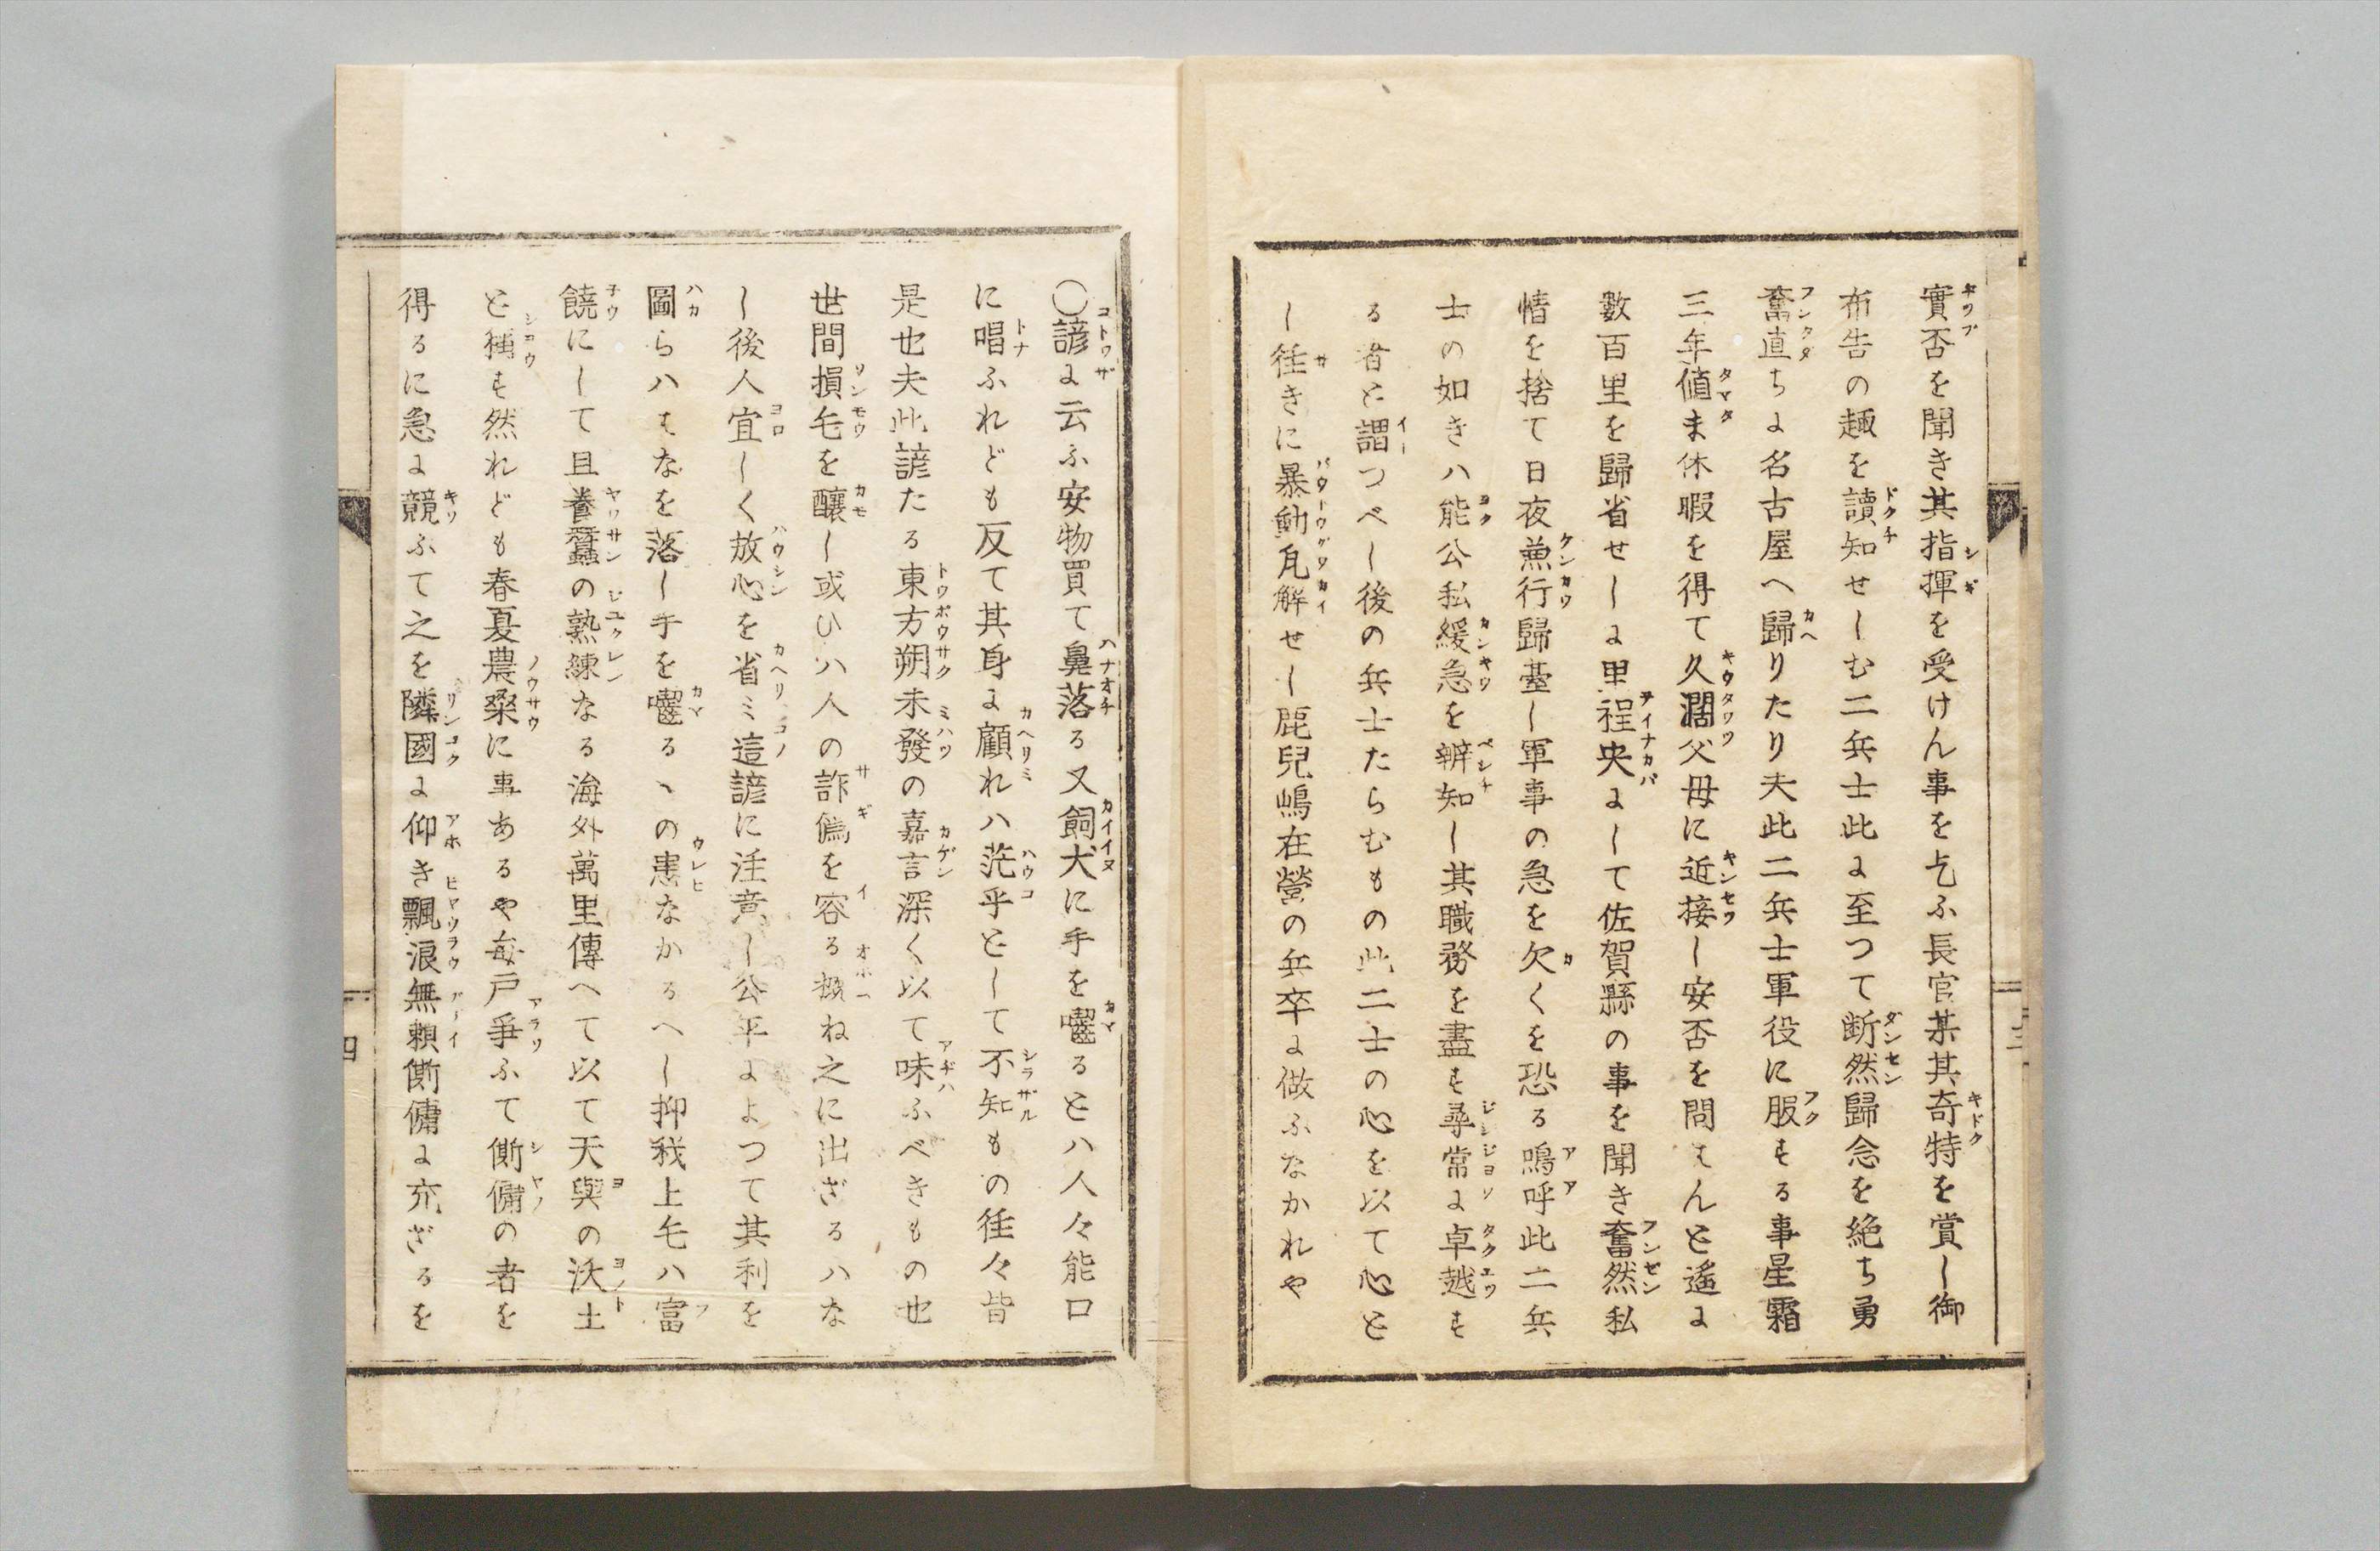 實否を聞き其指揮を受けん事を乞ふ長官某其奇特を賞し御
布告の趣を讀知せしむ二兵士此に至つて断然歸念を絶ち勇
奮直ちに名古屋へ歸りたり夫此二兵士軍役に服する事星霜
三年値ま休暇を得て久濶父母に近接し安否を問はんと遙に
數百里を歸省せしに里程央にして佐賀縣の事を聞き奮然私
情を捨て日夜兼行歸臺し軍事の急を欠くを恐る嗚呼此二兵
士の如きハ能公私緩急を辨知し其職務を盡す尋常に卓越す
る者と謂つべし後の兵士たらむもの此二士の心を以て心と
し徃きに暴動瓦解せし鹿兒嶋在營の兵卒に做ふなかれや
三
〇諺に云ふ安物買て鼻落る又飼犬に手を囓るとハ人々能口
に唱ふれども反て其身に顧れハ茫乎として不知もの徃々皆
是也夫此諺たる東方朔未發の嘉言深く以て味ふべきもの也
世間損毛を釀し或ひハ人の詐僞を容る概ね之に出ざるハな
し後人宜しく放心を省ミ這諺に注意し公平によつて其利を
圖らハはなを落し手を囓るゝの患なかるへし抑我上毛ハ富
饒にして且養蠶の熟練なる海外萬里傳へて以て天與の沃土
と稱す然れども春夏農桑に事あるや毎戸爭ふて傭の者を
得るに急に競ふて之を隣國に仰き飄浪無頼傭に充ざるを
四